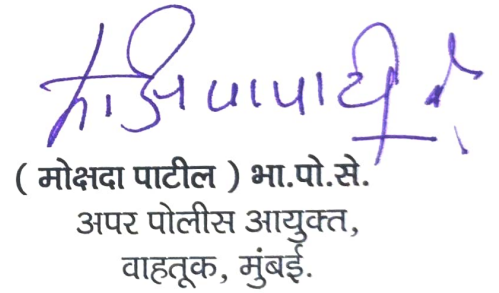 ( मोक्षदा पाटील ) भा.पो.से.
अपर पोलीस आयुक्त,
वाहतूक, मुंबई.